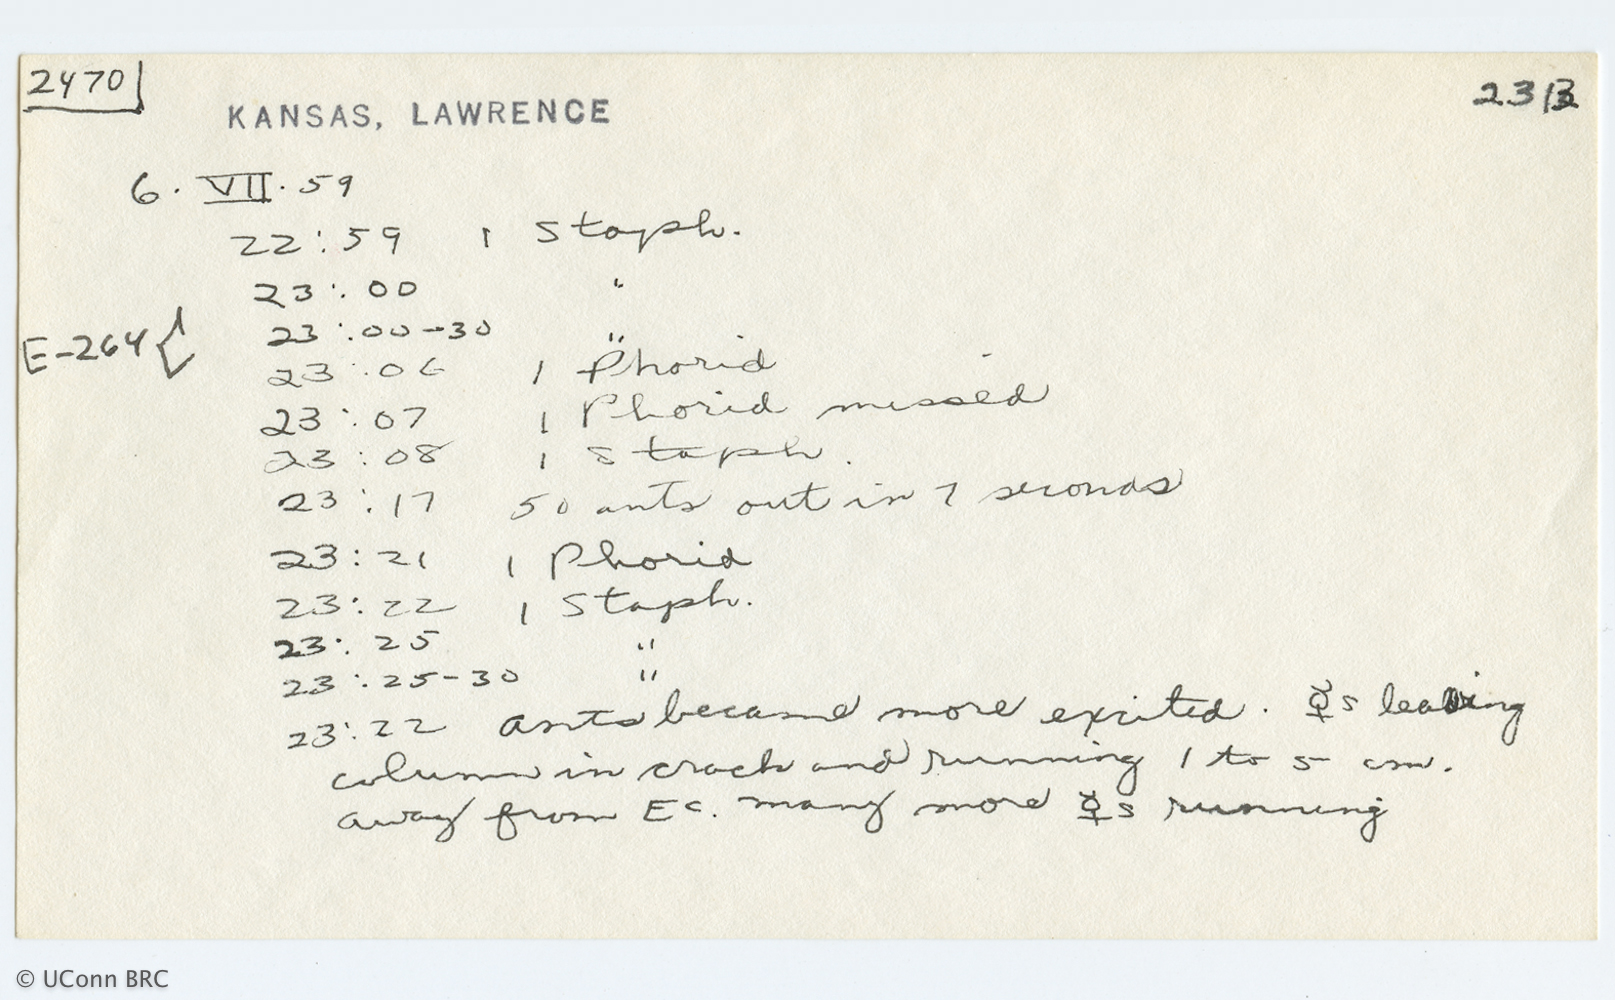 2470
2313
KANSAS, LAWRENCE
6. VII. 59
22:59 1 Staph.
23:00 "
E-264 { 23:00-30 "
23:06 1 Phorid
23:07 1 Phorid missed
23:08 1 Staph.
23:17 50 ants out in 7 seconds
23:21 1 Phorid
23:22 1 Staph.
23:25 "
23:25-30 "
23:22 ants became more excited. ☿s leaving
column in crack and running 1 to 5 cm.
away from Ec. many more ☿s running
© UConn BRC